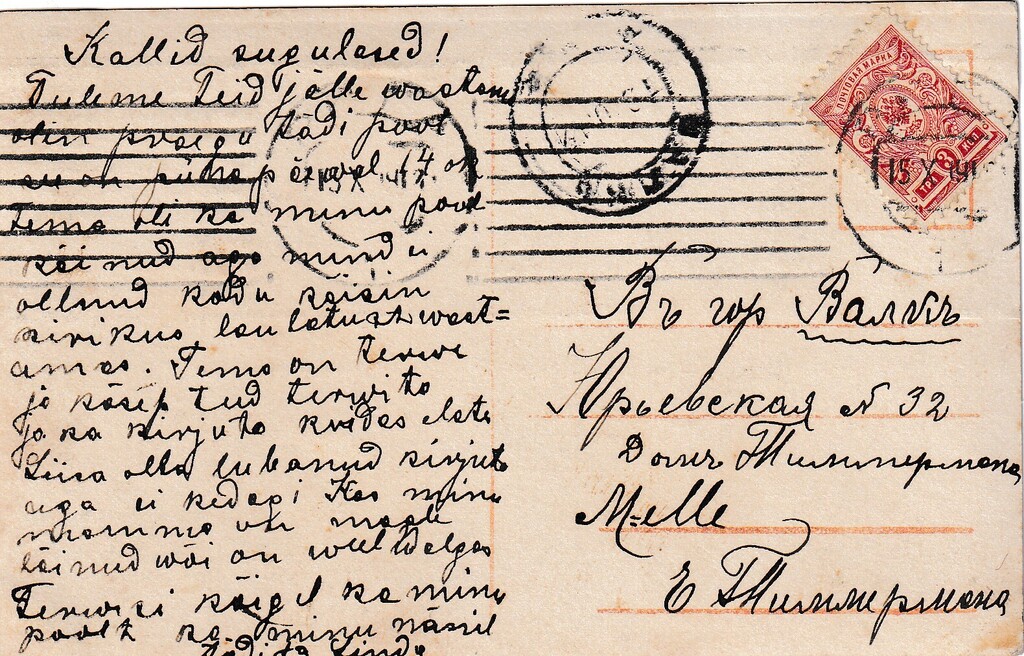 Kallid sugulased!
Tuleme Teid jälle wastama
olen praegu tädi pool
see on pühapäewal 14 ok
Tema oli ka minu pool
käinud aga mind ei
ollnud kodu käisin
kirikus laulatust waat=
amas. Tema on terwe
ja käsep teid terwita
ja ka kirjuta kuidas elate
Liisa olla lubanud kirjuta
aga ei kedagi Kas minu
mamma on maale
läinud wõi on weel Walgas
Terwisi kõigil ka minu
poolt ka minu
tädi Linda
ПОЧТОВАЯ МАРКА
ТРИ 3 КОП
15 X
Въ гор Валкъ
Юрьевская № 32
Домъ Тиммермана
M-elle
Е Тиммермана